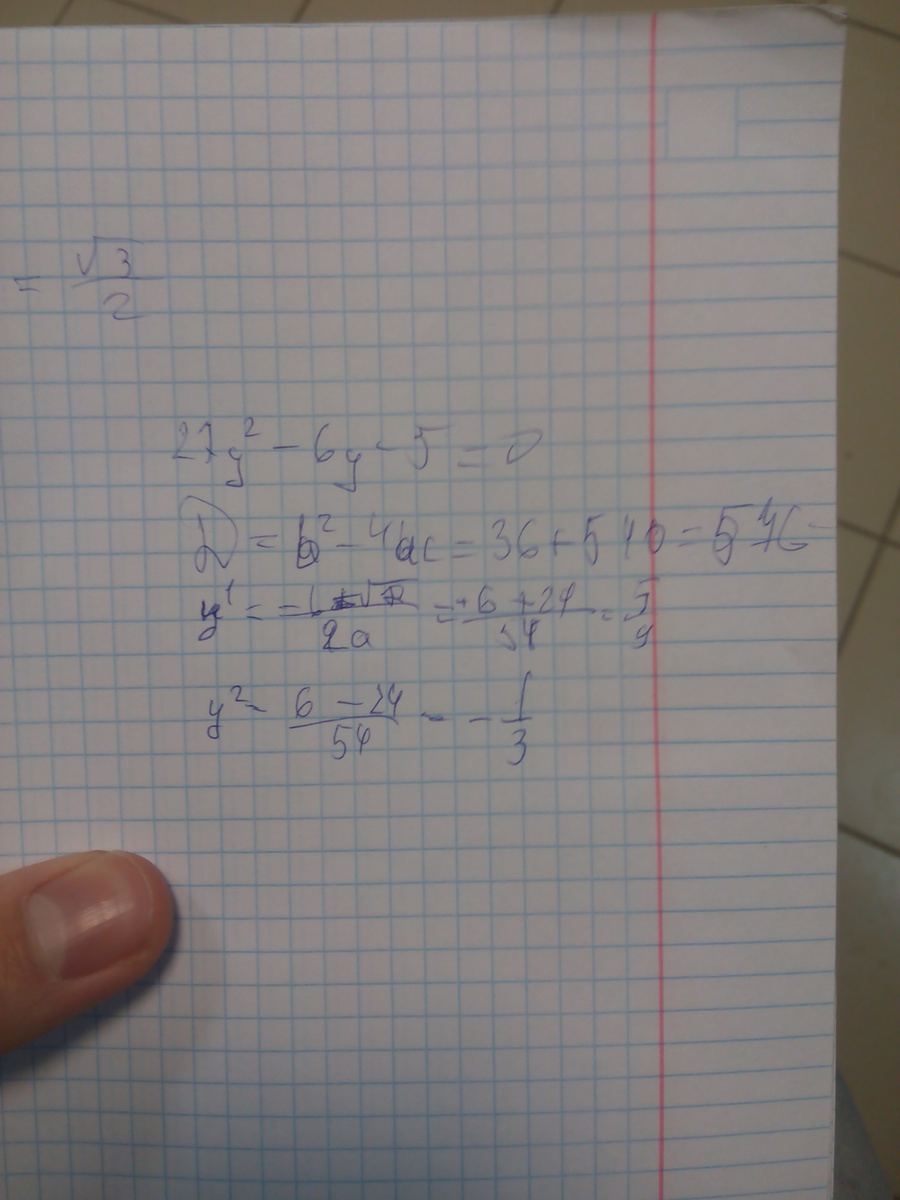 = √3/2
27y² - 6y - 5 = 0
D = b² - 4ac = 36 + 540 = 576
y¹ = -b+√D/2a = +6+24/54 = 5/9
y² - 6 - 24/54 - -1/3